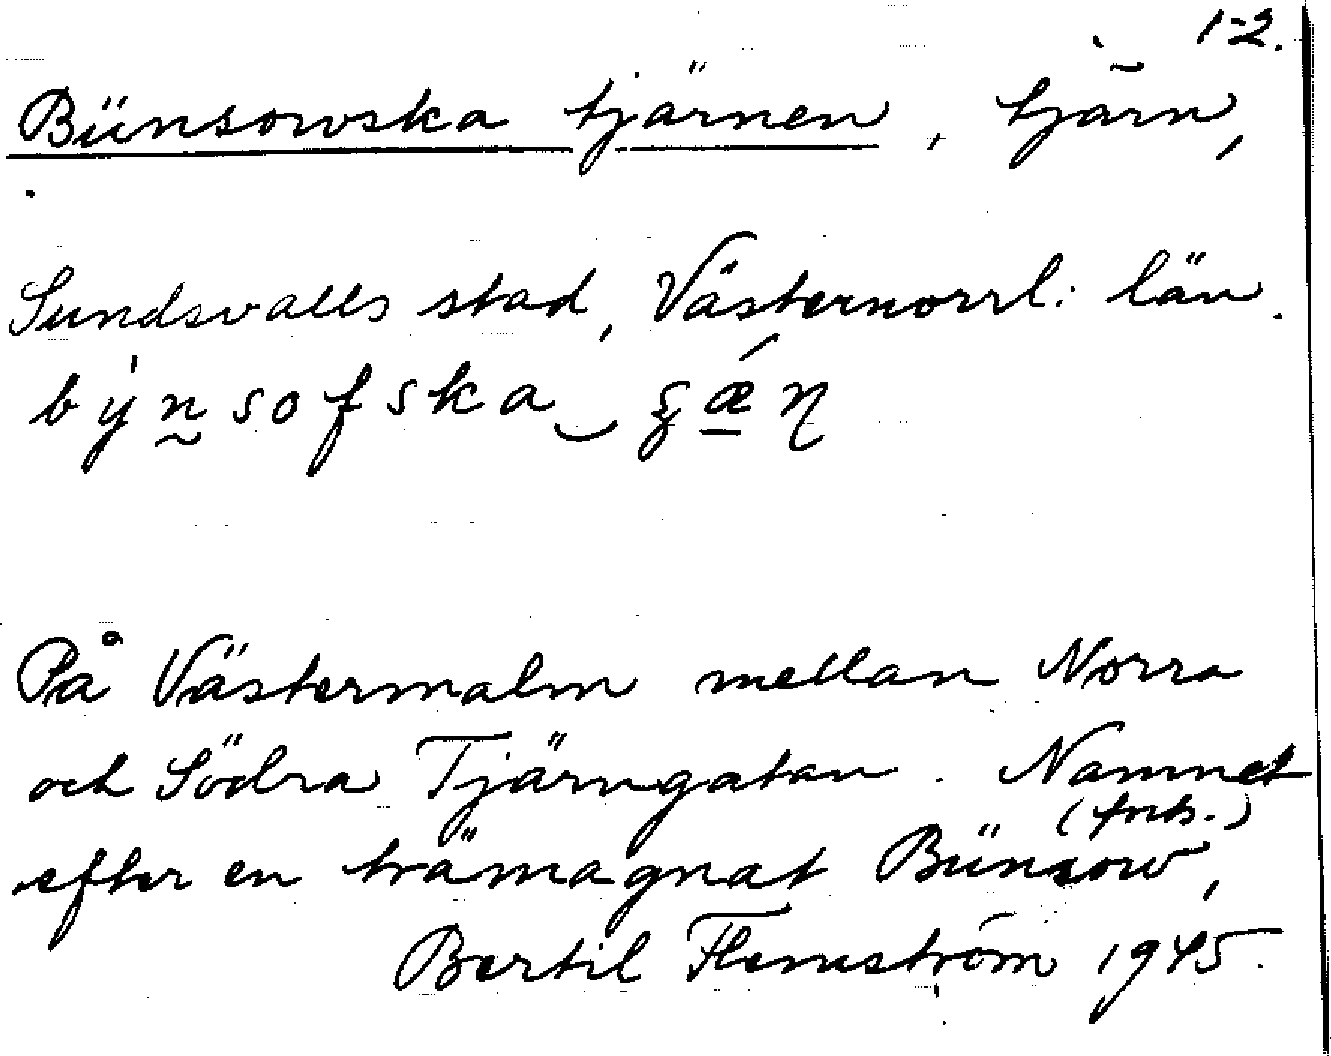 1-2.
Bünsowska tjärnen, tjärn,
Sundsvalls stad, Västernorrl: län.
býn̰sofska‿ʂǽ̱ɳ
På Västermalm mellan Norra
och Södra Tjärngatan. Namnet
efter en trämagnat (frih.) Bünsow,
Bertil Flemström 1945.